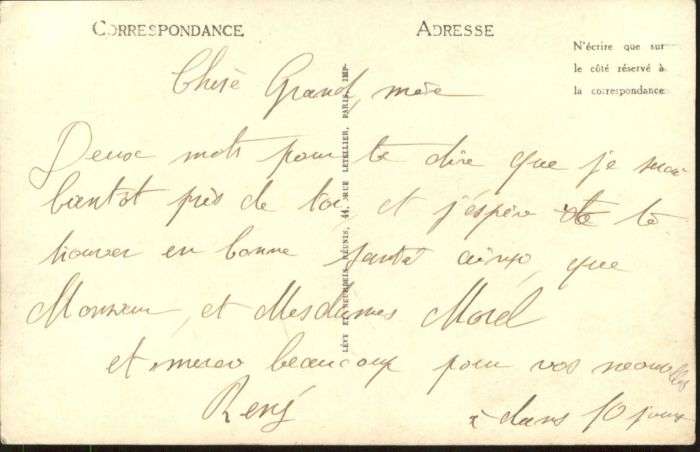 CORRESPONDANCE
ADRESSE
N'écrire que sur
le côté réservé à
la correspondance
LÉVY ET NEURDEIN RÉUNIS, 44, RUE LETELLIER, PARIS. IMP.
Cherè Grand, mère
Deux mots pour te dire que je serai
bantot près de toi, et j'espère te
trouver en bonne santé ainsi, que
Monsieur, et Mesdames Morel
et merci beaucoup pour vos nouvelles
René
à dans 10 jours